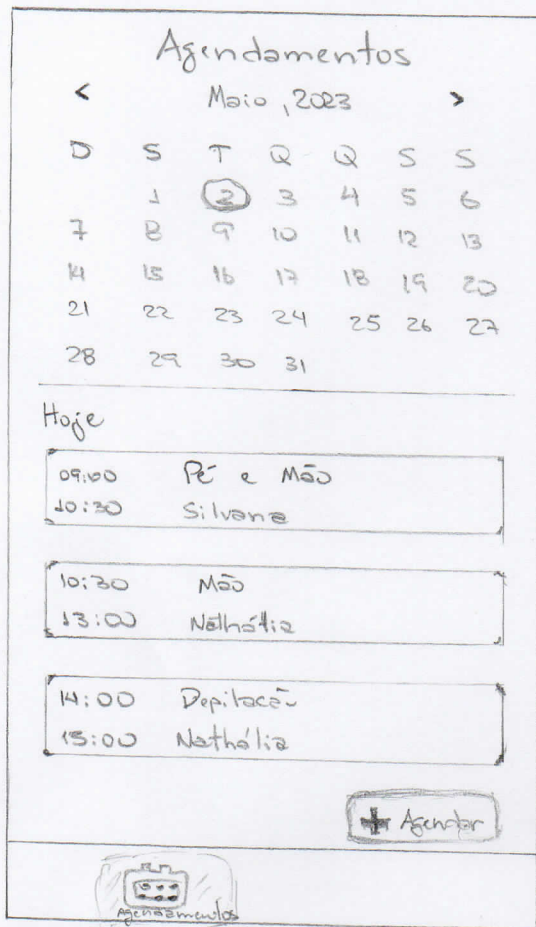 Agendamentos
< Maio, 2023 >
D S T Q Q S S
1 2 3 4 5 6
7 8 9 10 11 12 13
14 15 16 17 18 19 20
21 22 23 24 25 26 27
28 29 30 31
Hoje
09:00 Pé e Mão
10:30 Silvana
10:30 Mão
13:00 Nathália
14:00 Depilacão
15:00 Nathália
+ Agendar
Agendamentos